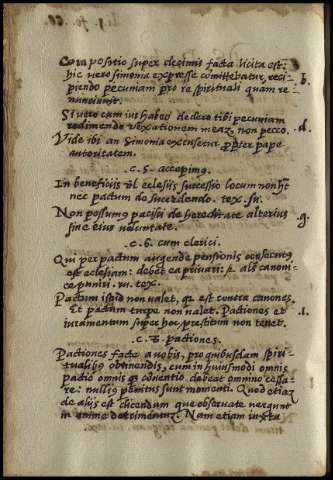 Compositio super decimis facta licita est:
hic vero simonia expresse comittebatur, reci-
piendo pecuniam pro re spirituali quam re-
nunciavit. b.
Si vero cum ius habeo dedero tibi pecuniam
redimendo vexationem meaz, non pecco. d.
Vide ibi an Simonia excusetur propter pape
autoritatem.
c. 5. accepimus.
In beneficiis vel eclesiis successio locum non ht
nec pactum de succedendo. tex. su.
Non possumus pacisci de hereditate alterius
sine eius voluntate. g.
c. 6. cum clerici.
Qui per pactum augende pensionis consecutus
est eclesiam: debet ea privari: & als canoni-
ce puniri. su. tex.
Pactum istud non valet, qz est contra canones.
Et pactum turpe non valet. Pactiones et
iuramentum super hoc prestitum non tenet. l.
c. 7. pactiones.
Pactiones facte a vobis, pro quibusdam spiri-
tualibus obtinendis, cum in huiusmodi omnis
pactio omnis qz conventio debeat omnino cessa-
re: nullius penitus sunt momenti. Quod etiaz
de aliis est dicendum que observate vergunt
in anime detrimentuz. Nam etiam iuxta